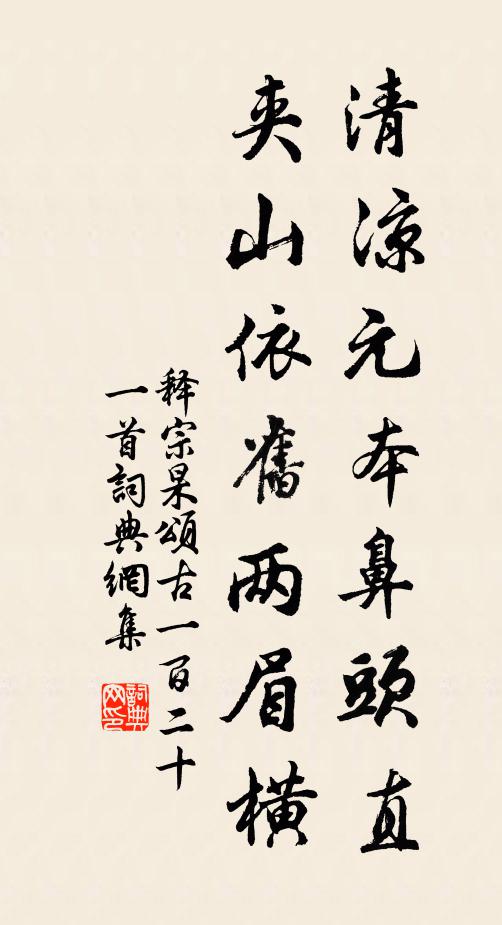 清凉元本鼻頭直
夾山依舊两眉橫
释宗杲頌古一百二十
一首詞典網集
詞典网印